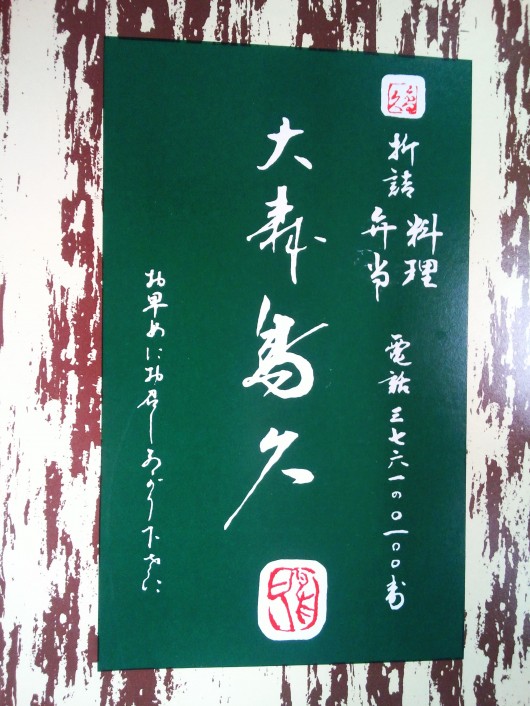 折詰
料理
弁当
電話 三七六一の〇一〇〇番
大森鳥久
お早めにお召しあがり下さい